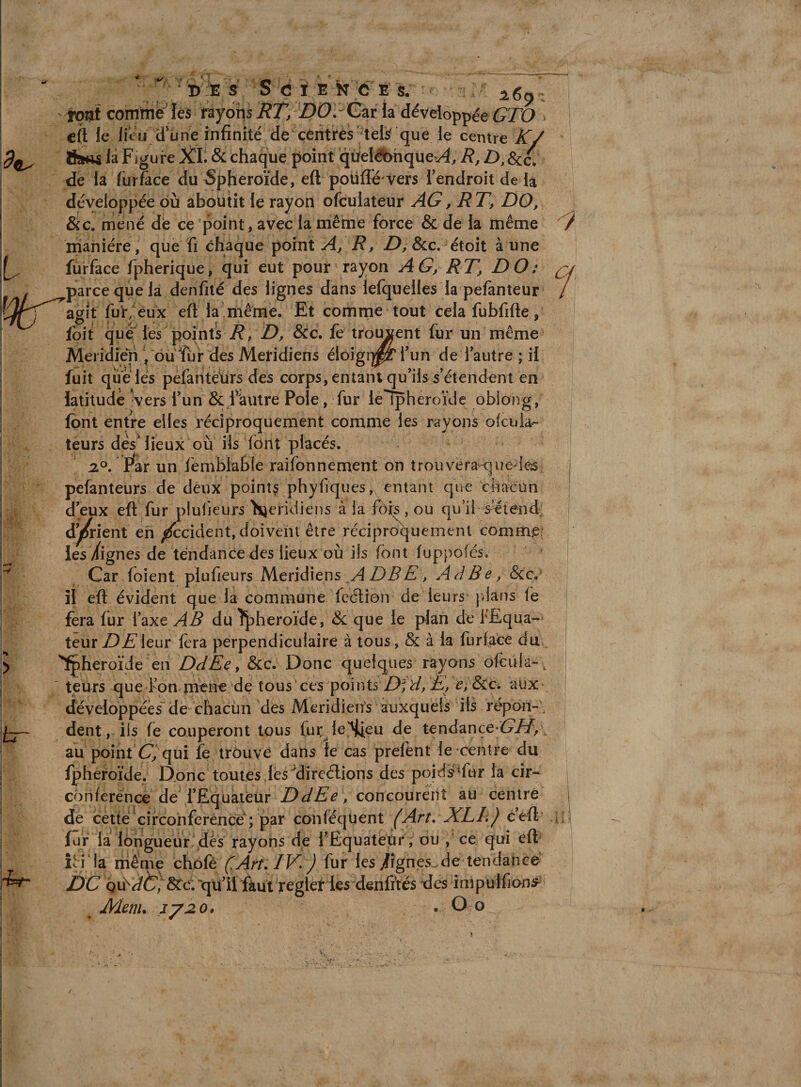 DES SCIENCES. 269
ront comme les rayons RT, DO. Car la développée GTO
est le lieu d'une infinité de centres tels que le centre K
la Figure XI. & chaque point quelconque A, R, D, &c.
de la surface du Spheroïde, est poussé vers l'endroit de la
développée où aboutit le rayon osculateur AG, RT, DO,
&c. mené de ce point, avec la même force & de la même
maniére, que si chaque point A, R, D, &c. étoit à une
surface spherique, qui eut pour rayon AG, RT, DO:
parce que la densité des lignes dans lesquelles la pesanteur
agit sur eux est la même. Et comme tout cela subsiste,
soit que les points R, D, &c. se trouvent sur un même
Meridien, ou sur des Meridiens éloignés l'un de l'autre; il
suit que les pesanteurs des corps, entant qu'ils s'étendent en
latitude vers l'un & l'autre Pole, sur le spheroïde oblong,
sont entre elles réciproquement comme les rayons oscula-
teurs des lieux où ils sont placés.
2°. Par un semblable raisonnement on trouvera que les
pesanteurs de deux points physiques, entant que chacun
d'eux est sur plusieurs Meridiens à la fois, ou qu'il s'étend
d'orient en occident, doivent être réciproquement comme
les lignes de tendance des lieux où ils sont supposés.
Car soient plusieurs Meridiens ADBE, AdBe, &c.
il est évident que la commune section de leurs plans se
sera sur l'axe AB du spheroïde, & que le plan de l'Equa-
teur DE leur sera perpendiculaire à tous, & à la surface du
spheroïde en DdEe, &c. Donc quelques rayons oscula-
teurs que l'on mene de tous ces points D, d, E, e, &c. aux
développées de chacun des Meridiens auxquels ils répon-
dent, ils se couperont tous sur le lieu de tendance GH,
au point C, qui se trouve dans le cas présent le centre du
spheroïde. Donc toutes les directions des poids sur la cir-
conférence de l'Equateur DdEe, concourent au centre
de cette circonférence; par conséquent (Art. XLI.) c'est
sur la longueur des rayons de l'Equateur, ou, ce qui est
ici la même chose (Art. IV.) sur les lignes de tendance
DC ou dC, &c. qu'il faut regler les densités des impulsions
Mem. 1720. . Oo